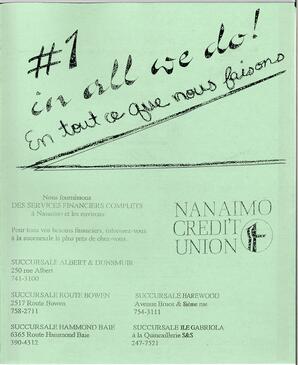 #1
in all we do!
En tout ce que nous faisons
Nous fournissons
DES SERVICES FINANCIERS COMPLETS
à Nanaimo et les environs
Pour tous vos besoins financiers, adressez-vous
à la succursale la plus près de chez-vous.
NANAIMO
CREDIT
UNION
SUCCURSALE ALBERT & DUNSMUIR
250 rue Albert
741-3100
SUCCURSALE ROUTE BOWEN
2517 Route Bowen
758-2711
SUCCURSALE HAREWOOD
Avenue Bruce & 8ième rue
754-3111
SUCCURSALE HAMMOND BAIE
6365 Route Hammond Baie
390-4312
SUCCURSALE ILE GABRIOLA
à la Quincaillerie S&S
247-7521